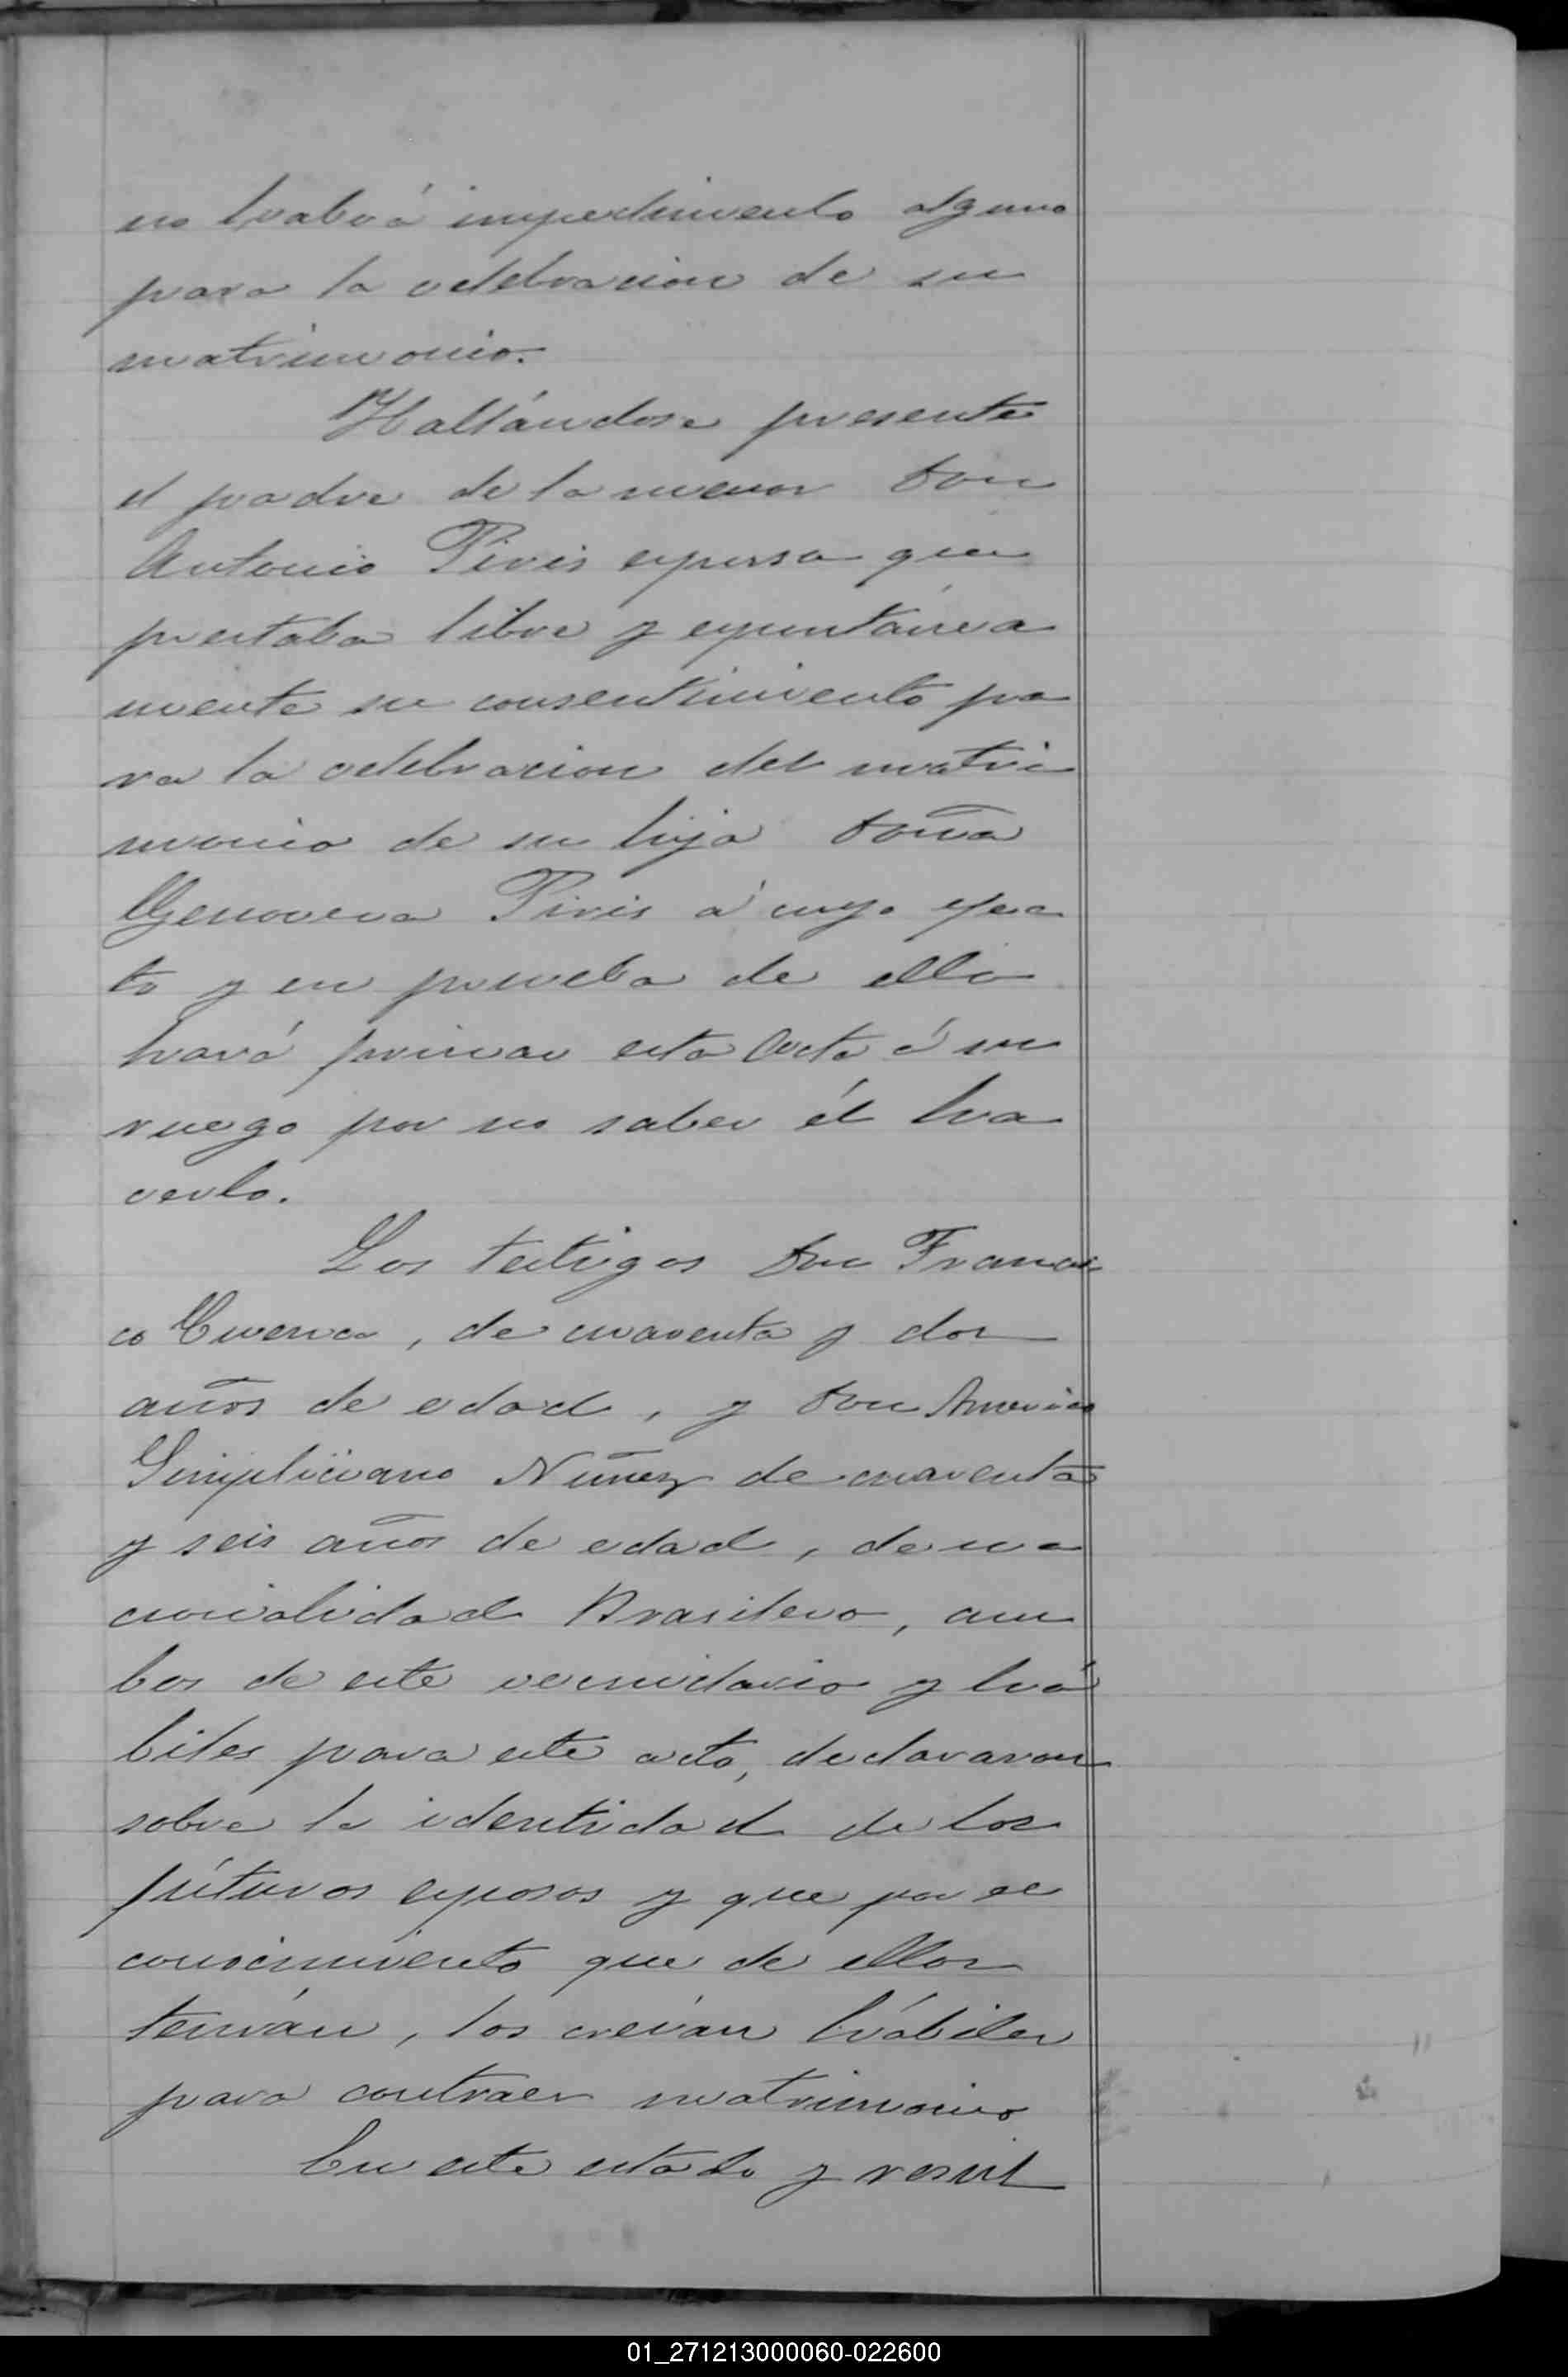 no habrá impedimento alguno
para la celebracion de su
matrimonio.
Hallándose presente
el padre de la menor Don
Antonio Piris espresa que
prestaba libre y espontánea
mente su consentimiento pa
ra la celebracion del matri
monio de su hija Doña
Genoveva Piris á cuyo efec
to y en prueba de ello
hará firmar esta Acta á su
ruego por no saber él ha
cerlo.
Los testigos Don Francis
co Cuenca, de cuarenta y dos
años de edad, y Don Americo
Simpliciano Nuñez de cuarenta
y seis años de edad, de na
cionalidad Brasilera, am
bos de este vecindario y há
biles para este acto, declararon
sobre la identidad de los
fúturos esposos y que por el
conocimiento que de ellos
tenían, los creían hábiles
para contraer matrimonio
En este estado y resul
01_271213000060-022600